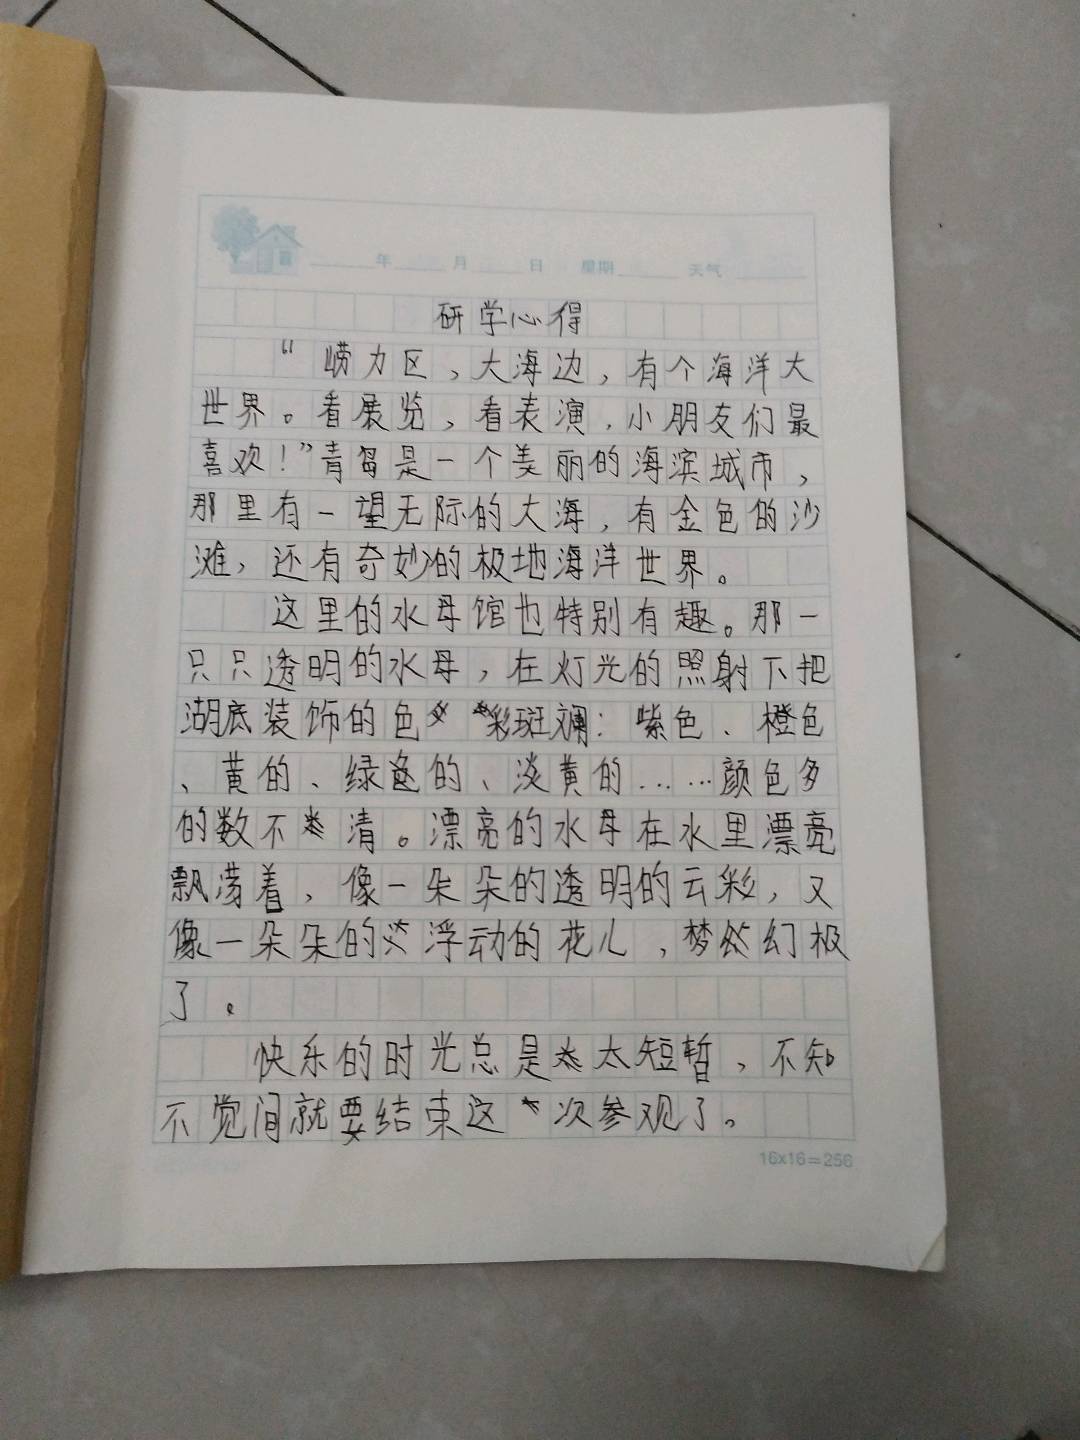 年 月 日 星期 天气
研学心得
“崂力区，大海边，有个海洋大
世界。看展览，看表演，小朋友们最
喜欢！”青岛是一个美丽的海滨城市，
那里有一望无际的大海，有金色的沙
滩，还有奇妙的极地海洋世界。
这里的水母馆也特别有趣。那一
只只透明的水母，在灯光的照射下把
湖底装饰的色彩斑斓：紫色、橙色
、黄的、绿色的、淡黄的……颜色多
的数不清。漂亮的水母在水里漂亮
飘荡着，像一朵朵的透明的云彩，又
像一朵朵的浮动的花儿，梦幻极
了。
快乐的时光总是太短暂，不知
不觉间就要结束这次参观了。
16x16=256